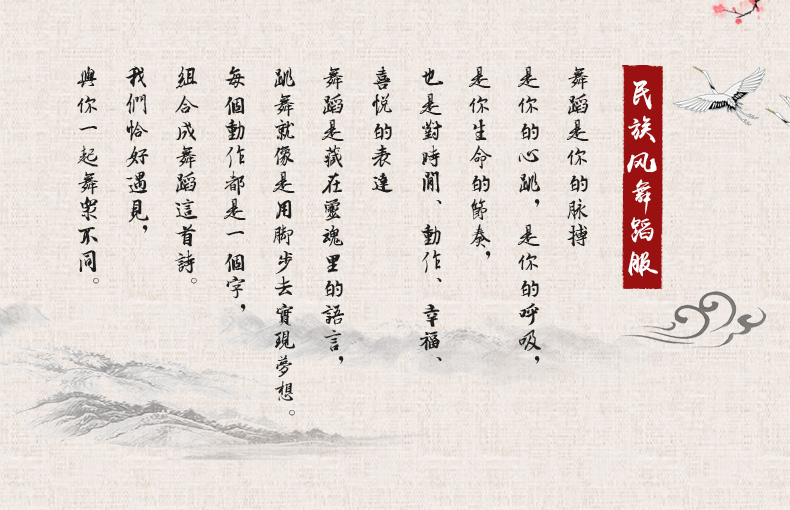 民族风舞蹈服
舞蹈是你的脉搏
是你的心跳，是你的呼吸，
是你生命的節奏，
也是對時間、動作、幸福、
喜悅的表達
舞蹈是藏在靈魂里的語言，
跳舞就像是用脚步去實現夢想。
每個動作都是一個字，
組合成舞蹈這首詩。
我們恰好遇見，
與你一起舞衆不同。